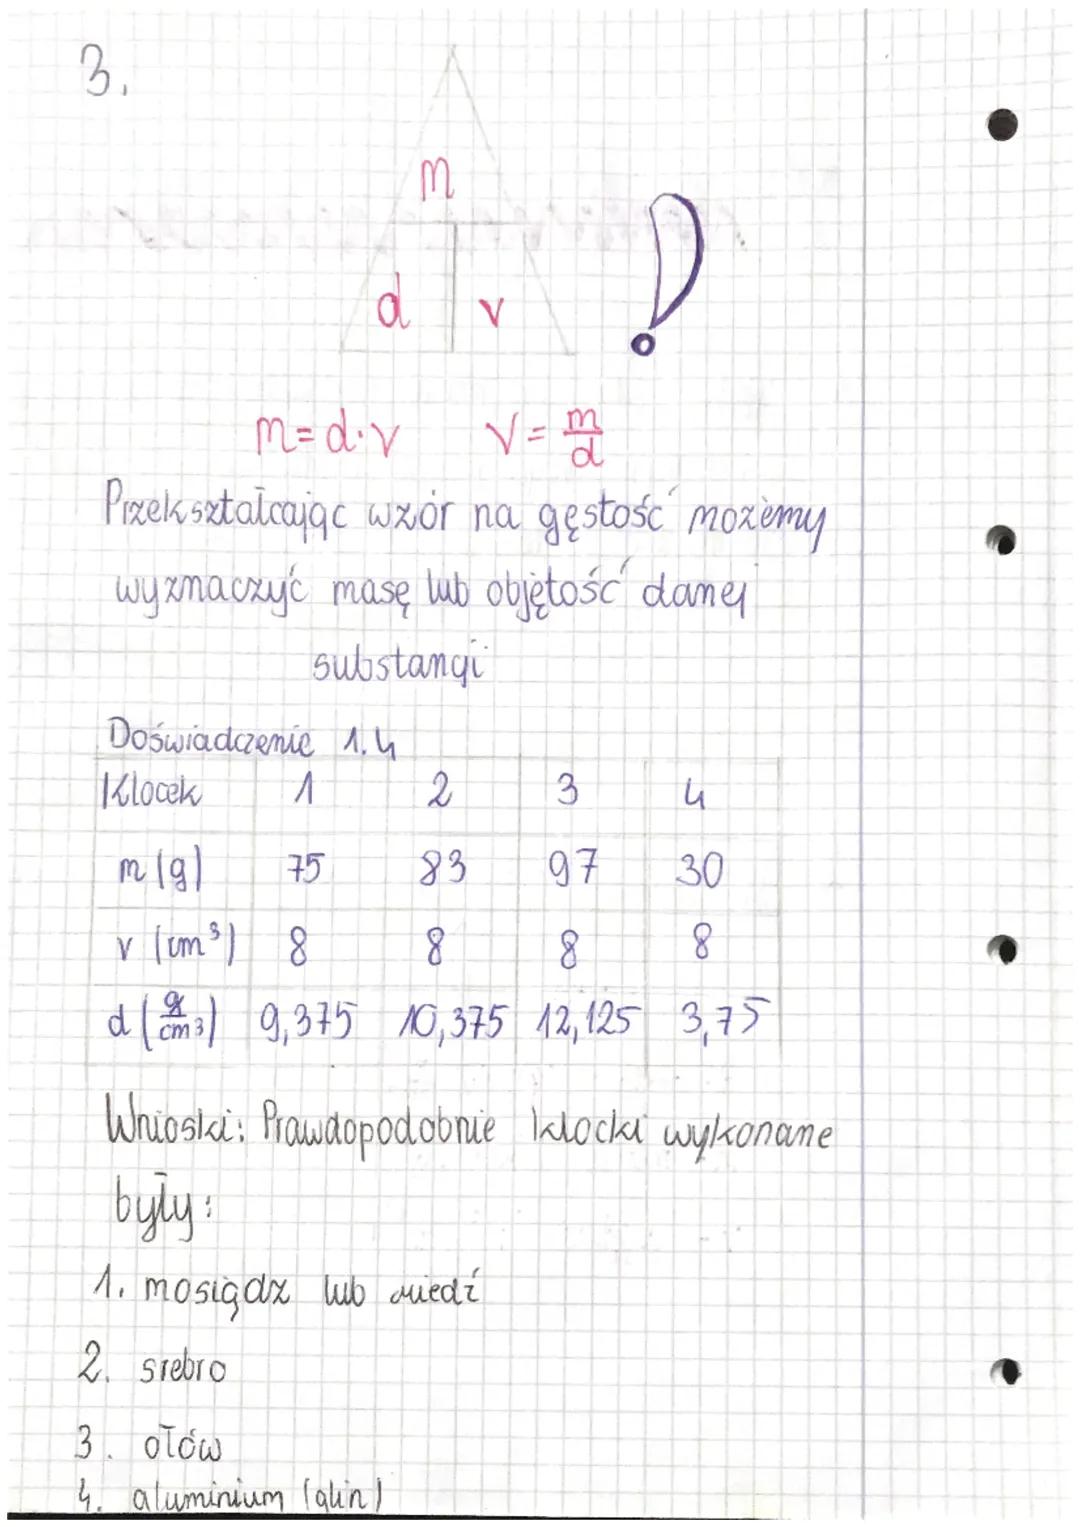 3.
m
d v
m=d·v V=m/d
Przekształcając wzór na gęstość możemy
wyznaczyć masę lub objętość danej
substancji
Doświadczenie 1.4
Klocek 1 2 3 4
m (g) 75 83 97 30
v (cm³) 8 8 8 8
d (g/cm³) 9,375 10,375 12,125 3,75
Wnioski: Prawdopodobnie klocki wykonane
były:
1. mosiądz lub miedź
2. srebro
3. ołów
4. aluminium (glin)